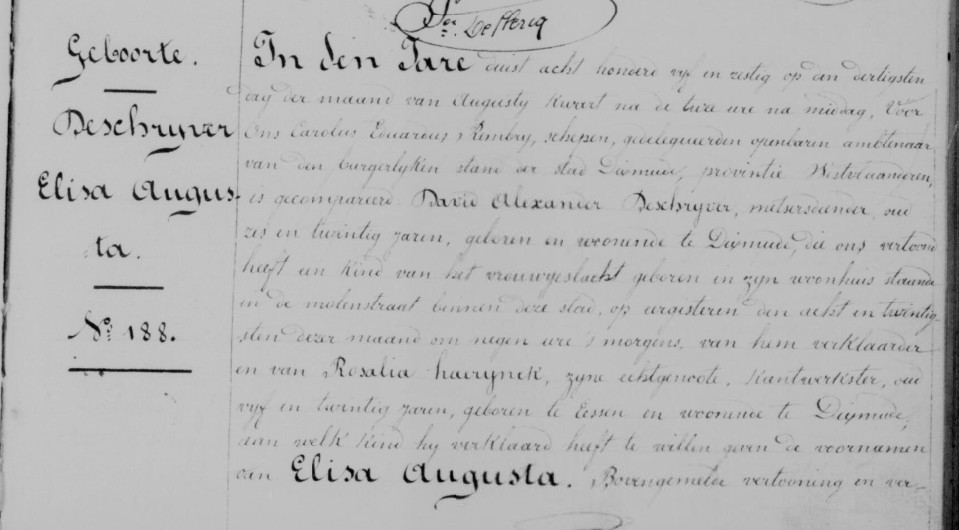 De Clercq
Geboorte.
Deschryver
Elisa Augus-
ta.
No. 188.
In den Jare duist acht honderd vyf en zestig op den dertigsten
dag der maand van Augusty kwart na de twee ure na middag, Voor
Ons Carolus Eduardus Rembry, schepen, gedelegueerden openbaren ambtenaar
van den burgerlyken stand der stad Dixmude, provintie Westvlaanderen,
is gecompareerd David Alexander Deschryver, metsersdiender, oud
zes en twintig jaren, geboren en woonende te Dixmude, die ons vertoond
heeft een kind van het vrouwgeslacht geboren en zyn woonhuis staande
in de molenstraat binnen deze stad, op eergisteren den acht en twintig-
sten dezer maand om negen ure 's morgens, van hem verklaarder
en van Rosalia haerynck, zyne echtgenoote, kantwerkster, oud
vyf en twintig jaren, geboren te Eessen en woonende te Dixmude,
aan welk kind hy verklaard heeft te willen geven de voornamen
van Elisa Augusta. Bovengemelde vertooning en ver-